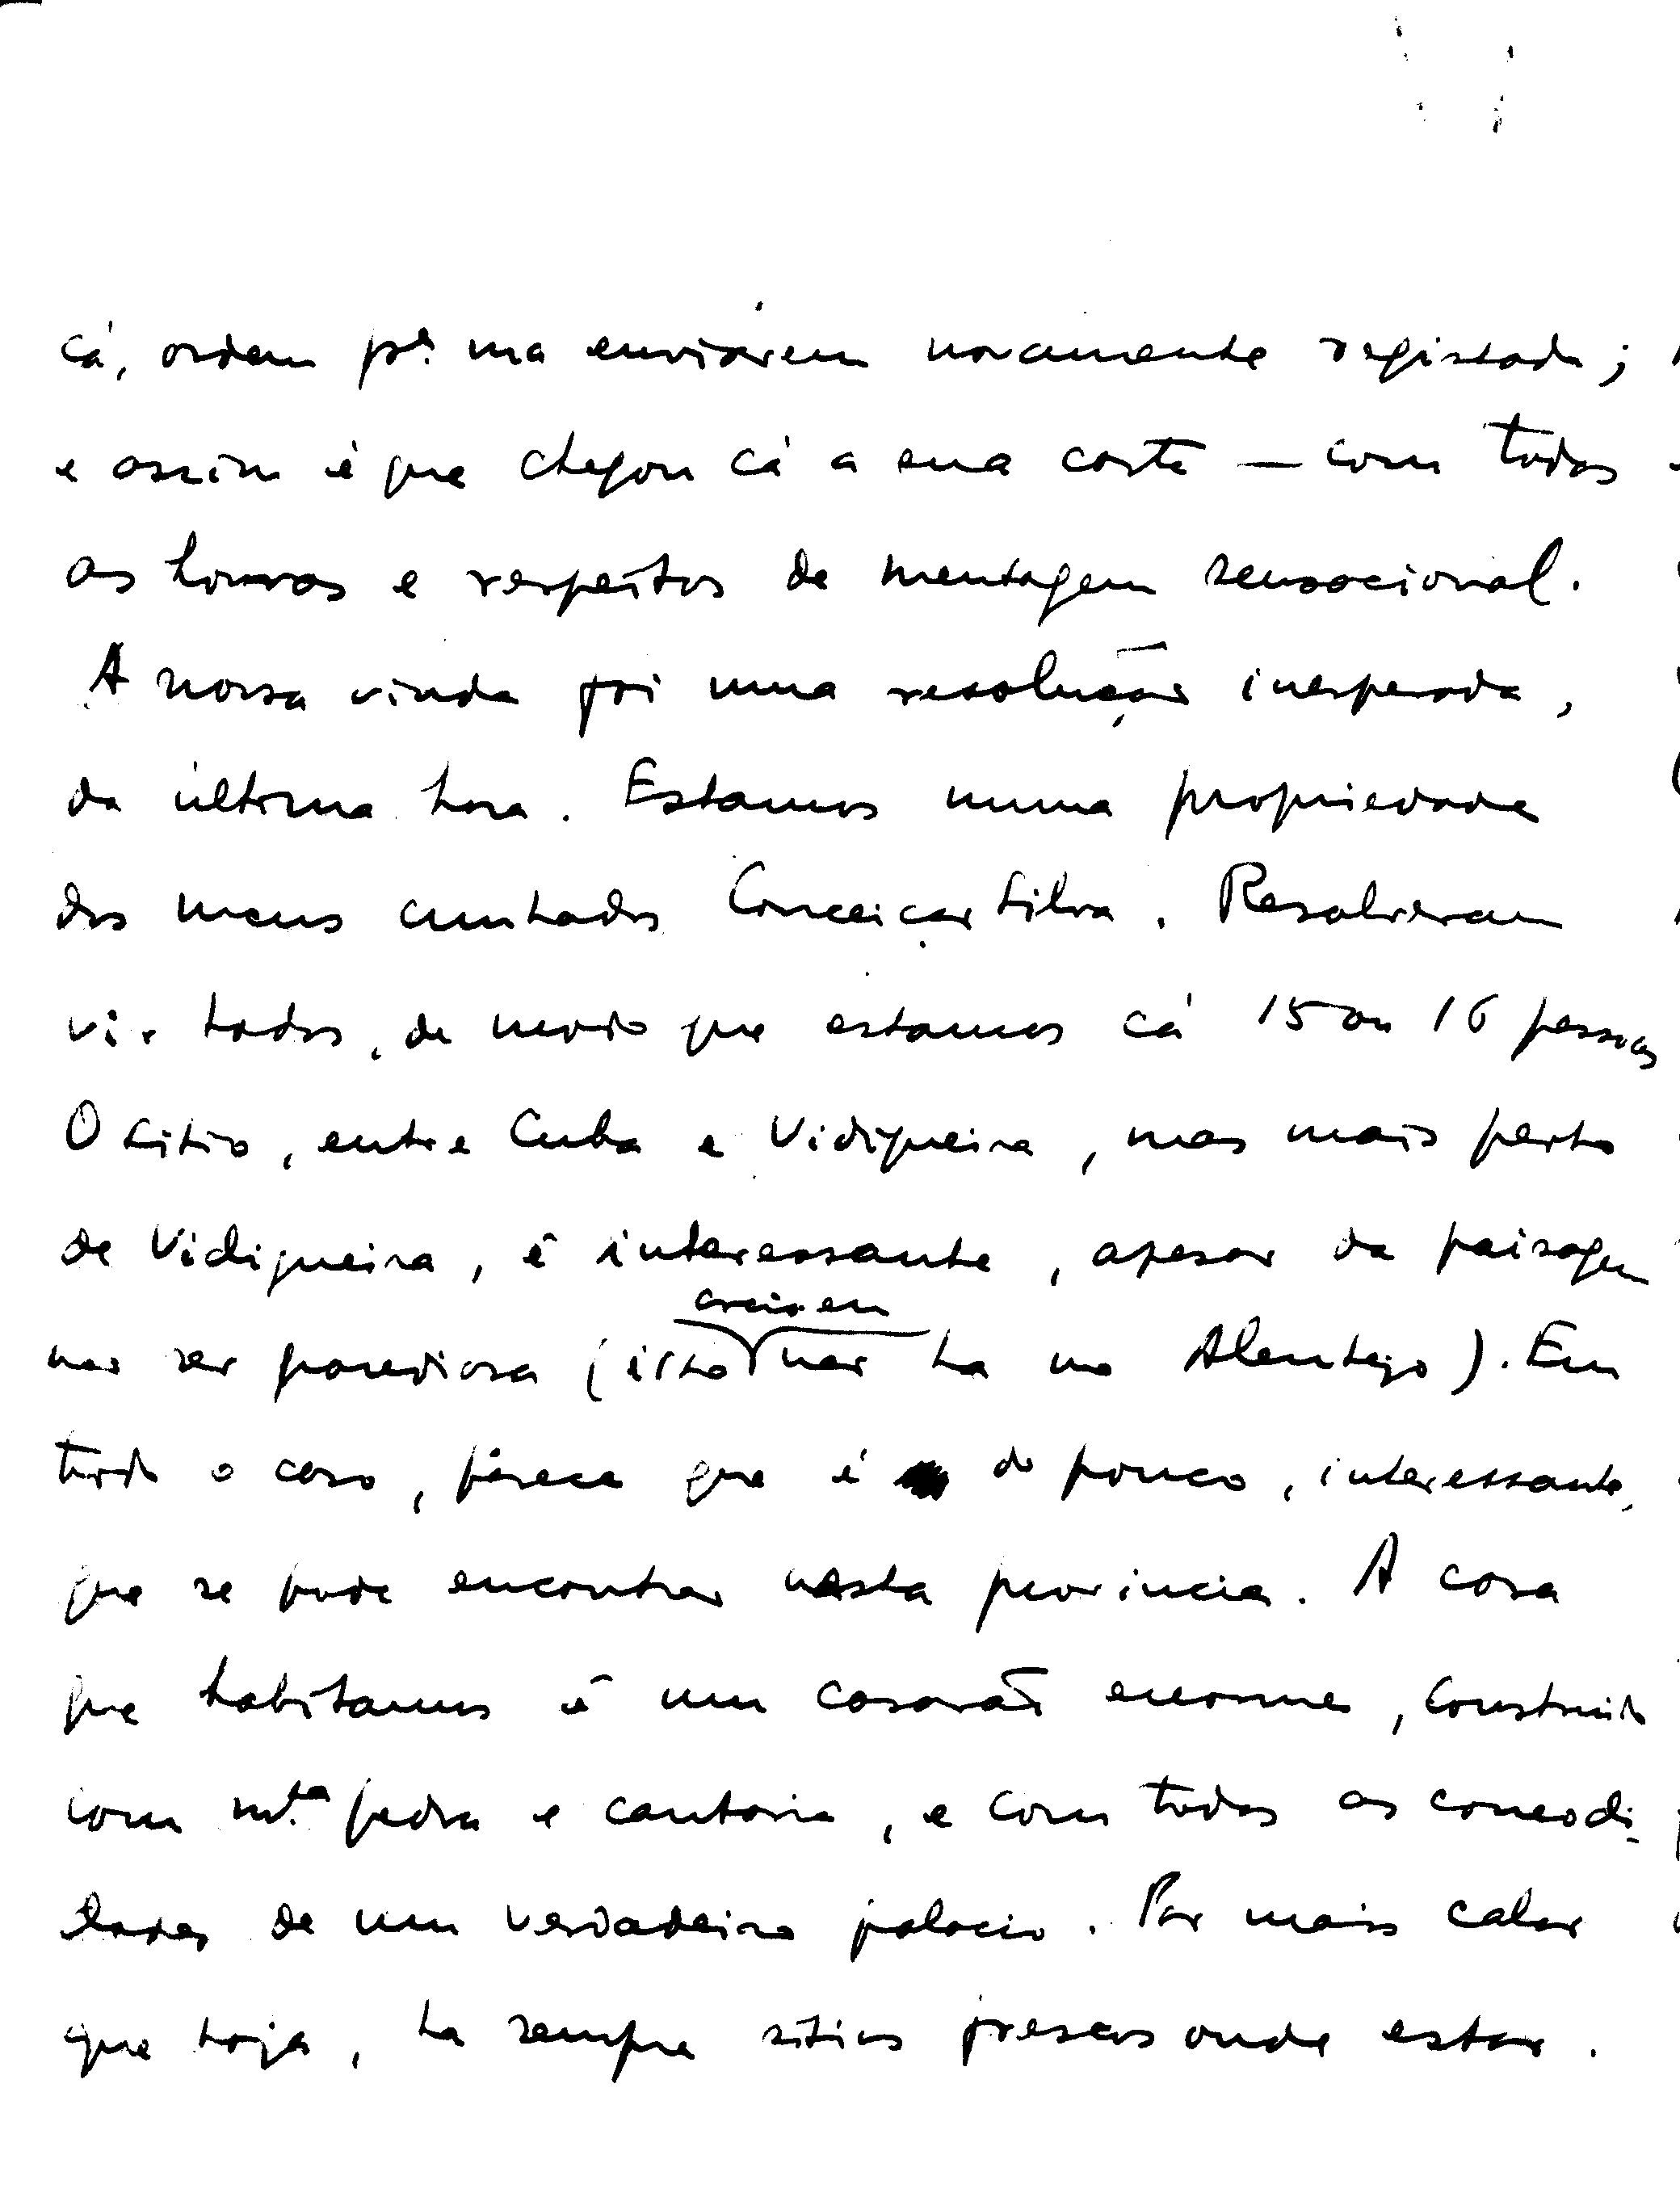 cá, ordem pª. ma enviarem novamente registada;
e assim é que chegou cá a sua carta — com todas
as honras e respeitos de mensagem sensacional.
A nossa vinda foi uma resolução inesperada,
da última hora. Estamos numa propriedade
dos meus cunhados Conceição Silva. Resolveram
vir todos, de modo que estamos cá 15 ou 16 pessoas
O sitio, entre Cuba e Vidigueira, mas mais perto
de Vidigueira, é interessante, apesar da paisagem
creio eu
não ser grandiosa (isso não ha no Alentejo). Em
todo o caso, parece que é do pouco, interessante,
que se pode encontrar nesta provincia. A casa
que habitamos é um casarão enorme, construido
com mtª pedra e cantaria, e com todas as comodi-
dades de um verdadeiro palacio. Por mais calor
que haja, ha sempre sitios frescos onde estar.